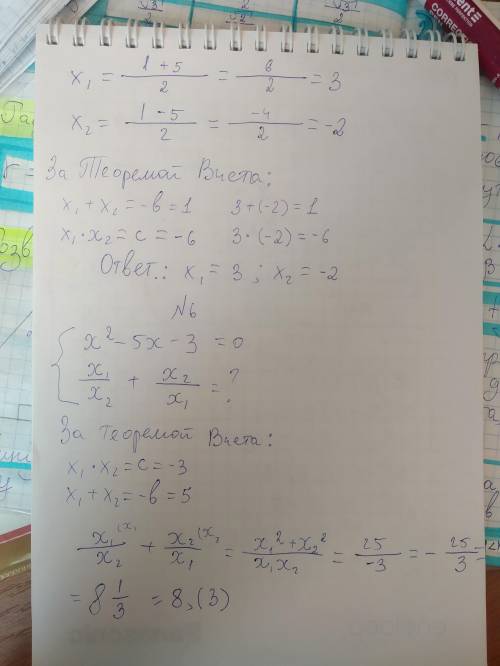 x₁ = (1 + 5)/2 = 6/2 = 3
x₂ = (1 - 5)/2 = -4/2 = -2
За Теоремой Виета:
x₁ + x₂ = -b = 1 3 + (-2) = 1
x₁ · x₂ = c = -6 3 · (-2) = -6
Ответ.: x₁ = 3 ; x₂ = -2
№6
{ x² - 5x - 3 = 0
x₁/x₂ + x₂/x₁ = ?
За теоремой Виета:
x₁ · x₂ = c = -3
x₁ + x₂ = -b = 5
x₁⁽ˣ₁/x₂ + x₂⁽ˣ₂/x₁ = (x₁² + x₂²)/(x₁x₂) = 25/-3 = - 25/3 =
= 8 1/3 = 8,(3)